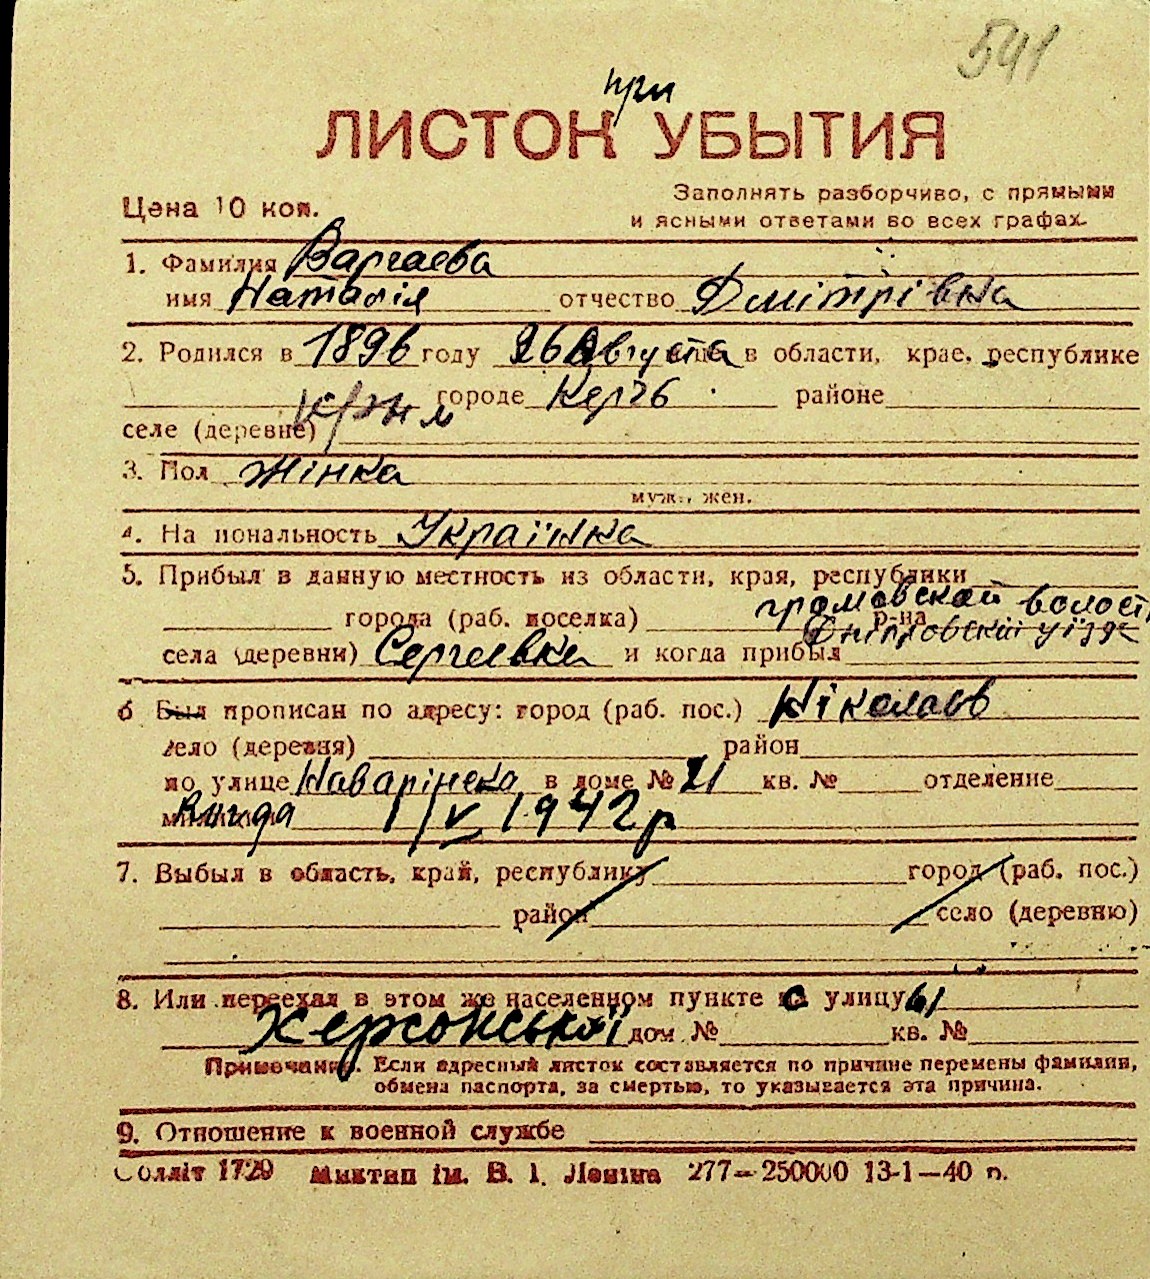 541
при
ЛИСТОК УБЫТИЯ
Цена 10 коп.
Заполнять разборчиво, с прямыми
и ясными ответами во всех графах.
1. Фамилия Варгаева
имя Наталія отчество Дмітрівна
2. Родился в 1896 году 26 Августа в области, крае, республике
Крым городе Керчь районе
селе (деревне)
3. Пол жінка
муж., жен.
4. Национальность Українка
5. Прибыл в данную местность из области, края, республики
города (раб. поселка) громовской волости р-на
Дніпровской уїзда
села (деревни) Сергеевка и когда прибыл
6 Был прописан по адресу: город (раб. пос.) Ніколаєв
село (деревня) район
по улице Наварінска в доме № 21 кв. № отделение
милиции 1/V 1942 р
7. Выбыл в область, край, республику город (раб. пос.)
район село (деревню)
8. Или переехал в этом же населенном пункте с улицу 61
Херсонської дом № кв. №
Примечание. Если адресный листок составляется по причине перемены фамилии,
обмена паспорта, за смертью, то указывается эта причина.
9. Отношение к военной службе
Облліт 1729 Миктип ім. В. І. Леніна 277—250000 13-1—40 р.